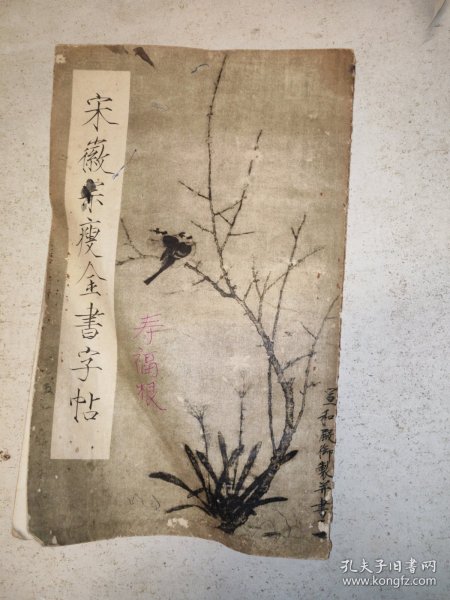 宋徽宗瘦金書字帖
寿福根
宣和殿御製并書
孔夫子旧书网
www.kongfz.com